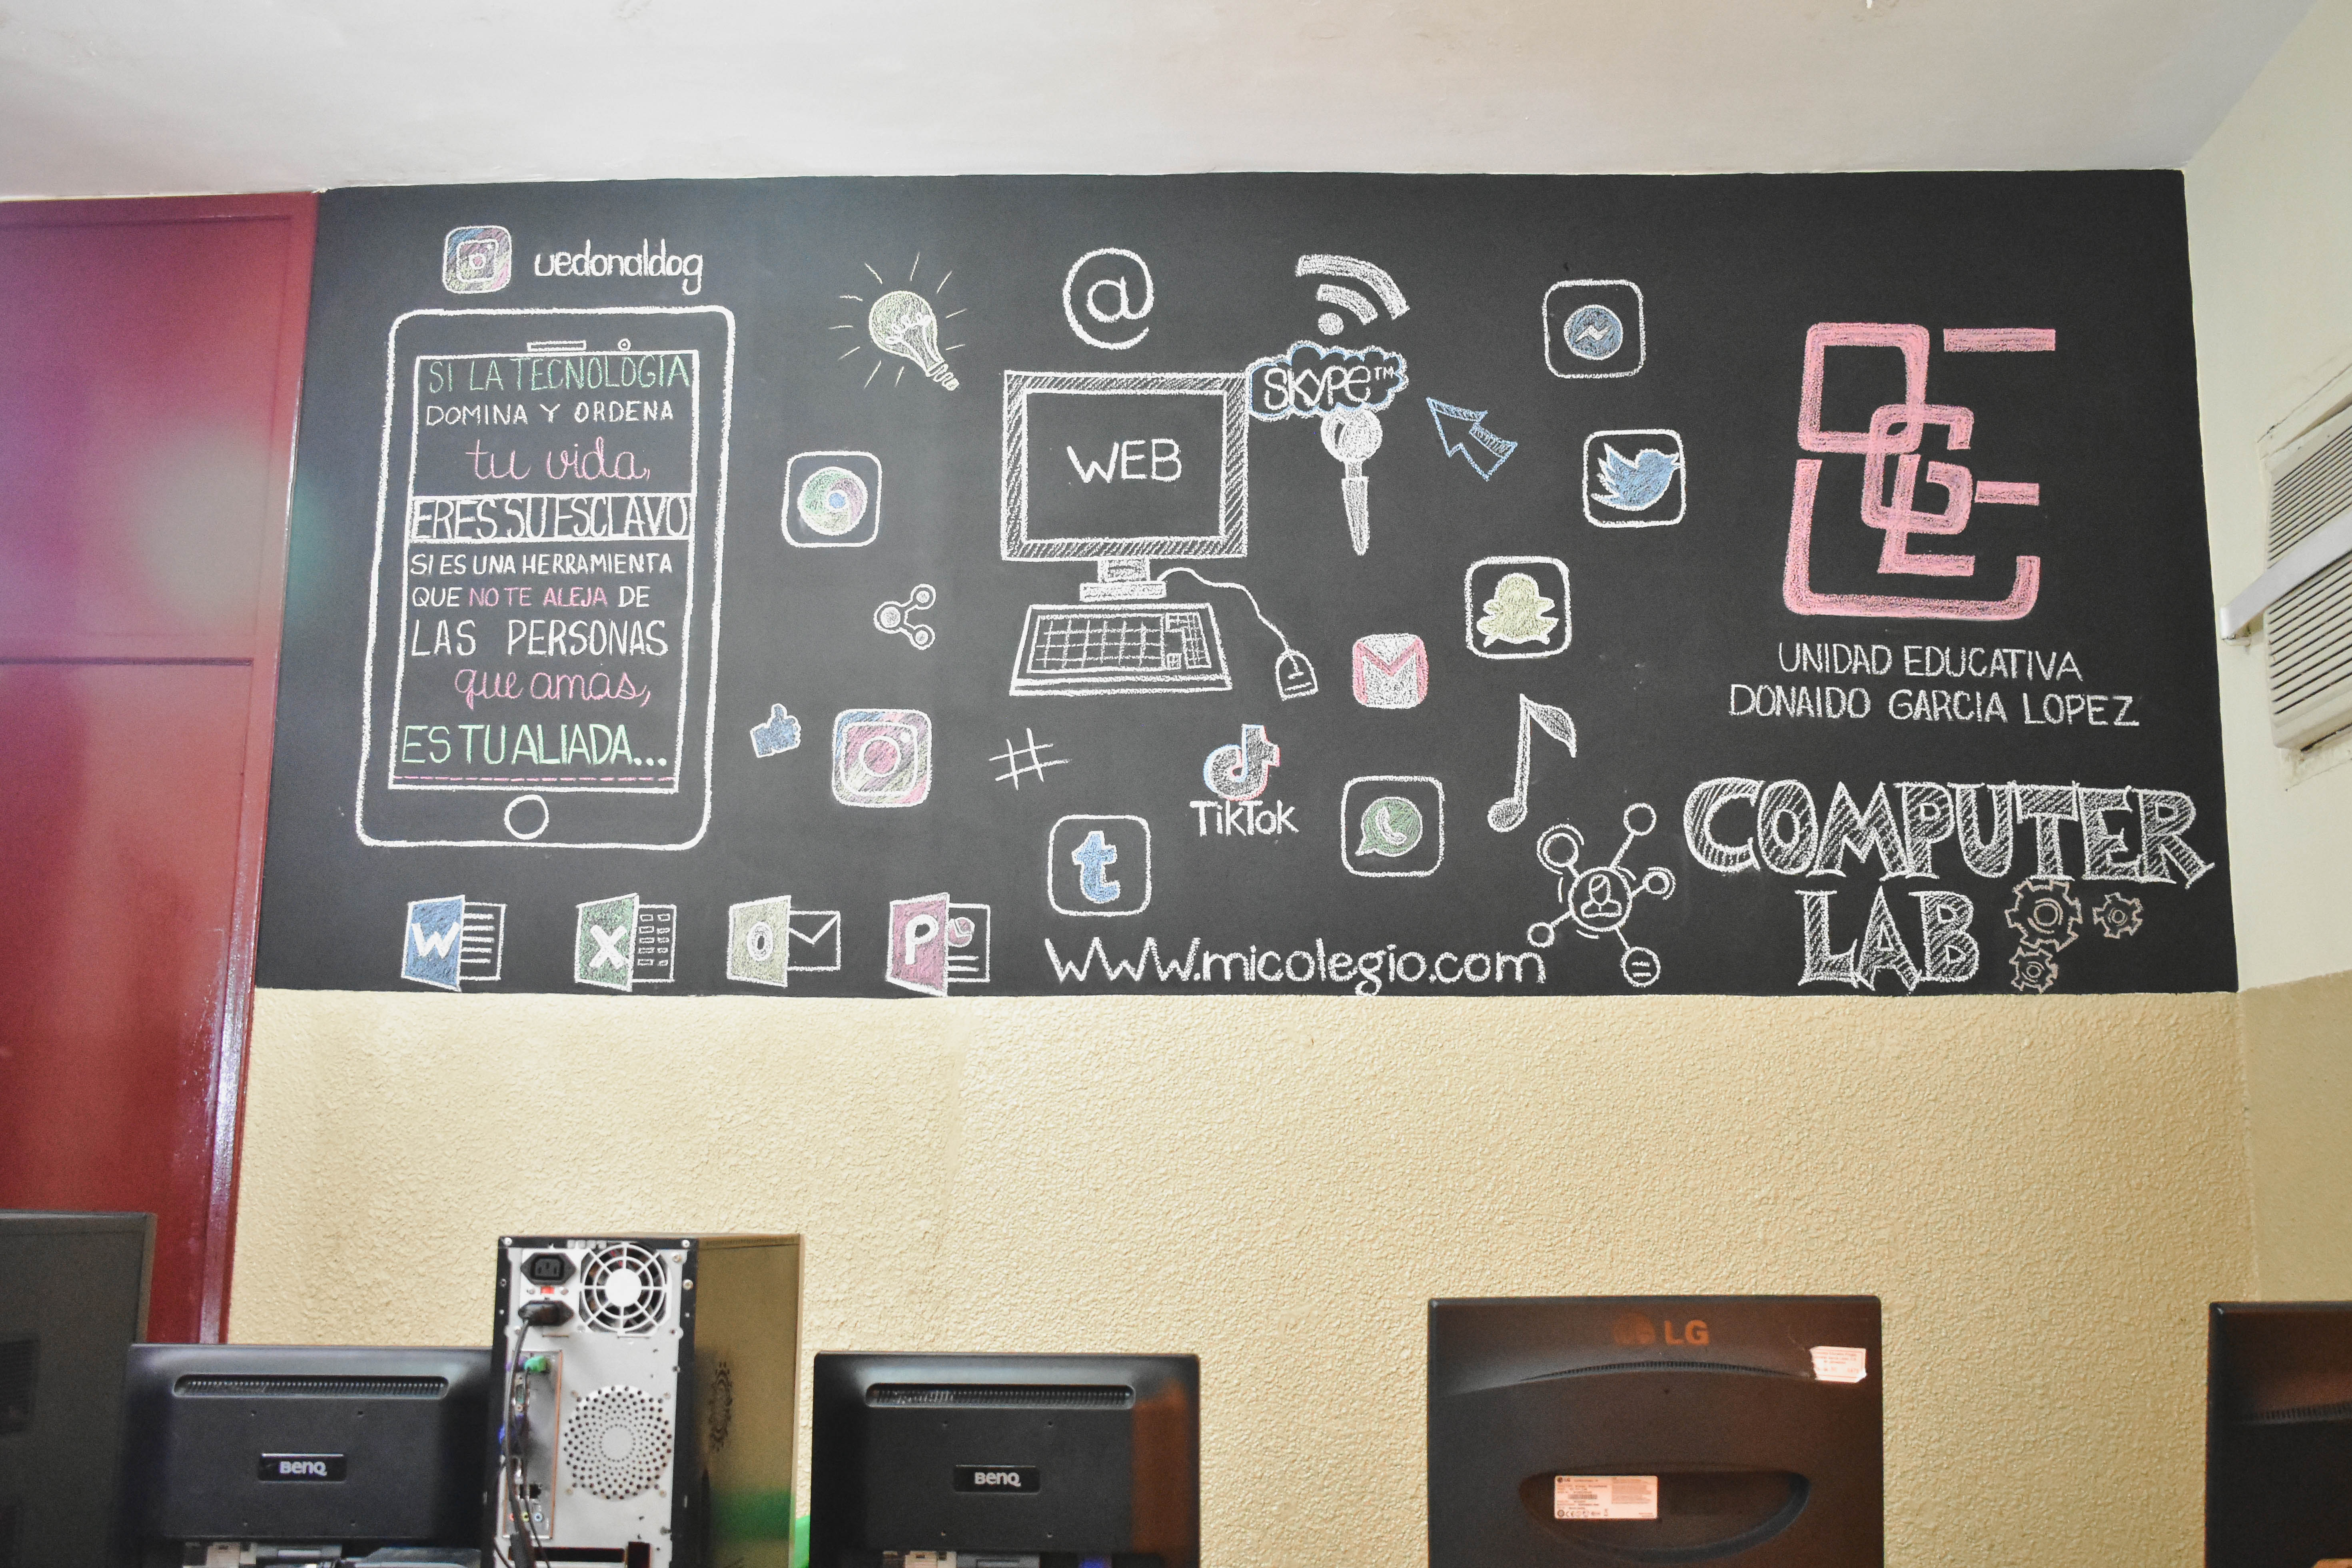 uedonaldog
SI LA TECNOLOGIA
DOMINA Y ORDENA
tu vida,
ERES SU ESCLAVO
SI ES UNA HERRAMIENTA
QUE NO TE ALEJA DE
LAS PERSONAS
que amas,
ES TU ALIADA...
@
SKYPE™
WEB
#
TikTok
t
W
X
O
P
www.micolegio.com
UNIDAD EDUCATIVA
DONALDO GARCIA LOPEZ
COMPUTER
LAB
BenQ
BenQ
LG